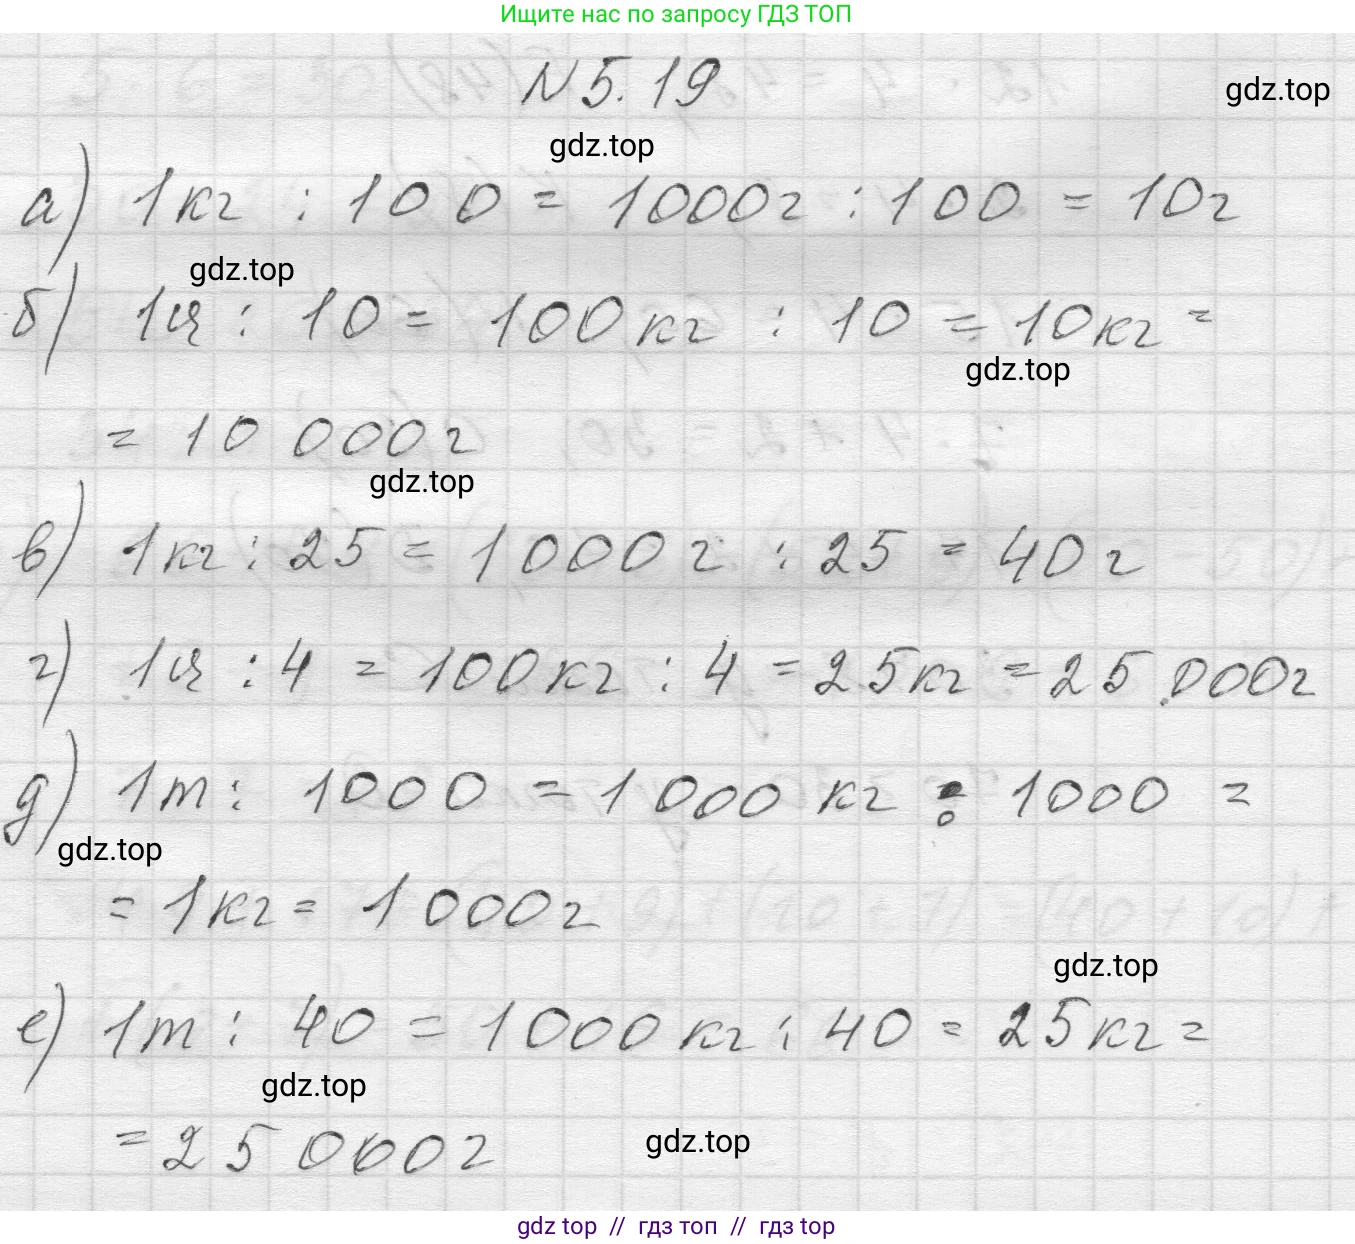 Ищите нас по запросу ГДЗ ТОП
N 5.19
gdz.top
gdz.top
а) 1кг : 100 = 1000г : 100 = 10г
gdz.top
б) 1ц : 10 = 100кг : 10 = 10кг =
gdz.top
= 10 000г
gdz.top
в) 1кг : 25 = 1000г : 25 = 40г
г) 1ц : 4 = 100кг : 4 = 25кг = 25 000г
д) 1т : 1000 = 1000 кг : 1000 =
gdz.top
= 1кг = 1000г
gdz.top
е) 1т : 40 = 1000кг : 40 = 25кг =
gdz.top
= 25 000г
gdz.top
gdz top // гдз топ // гдз top